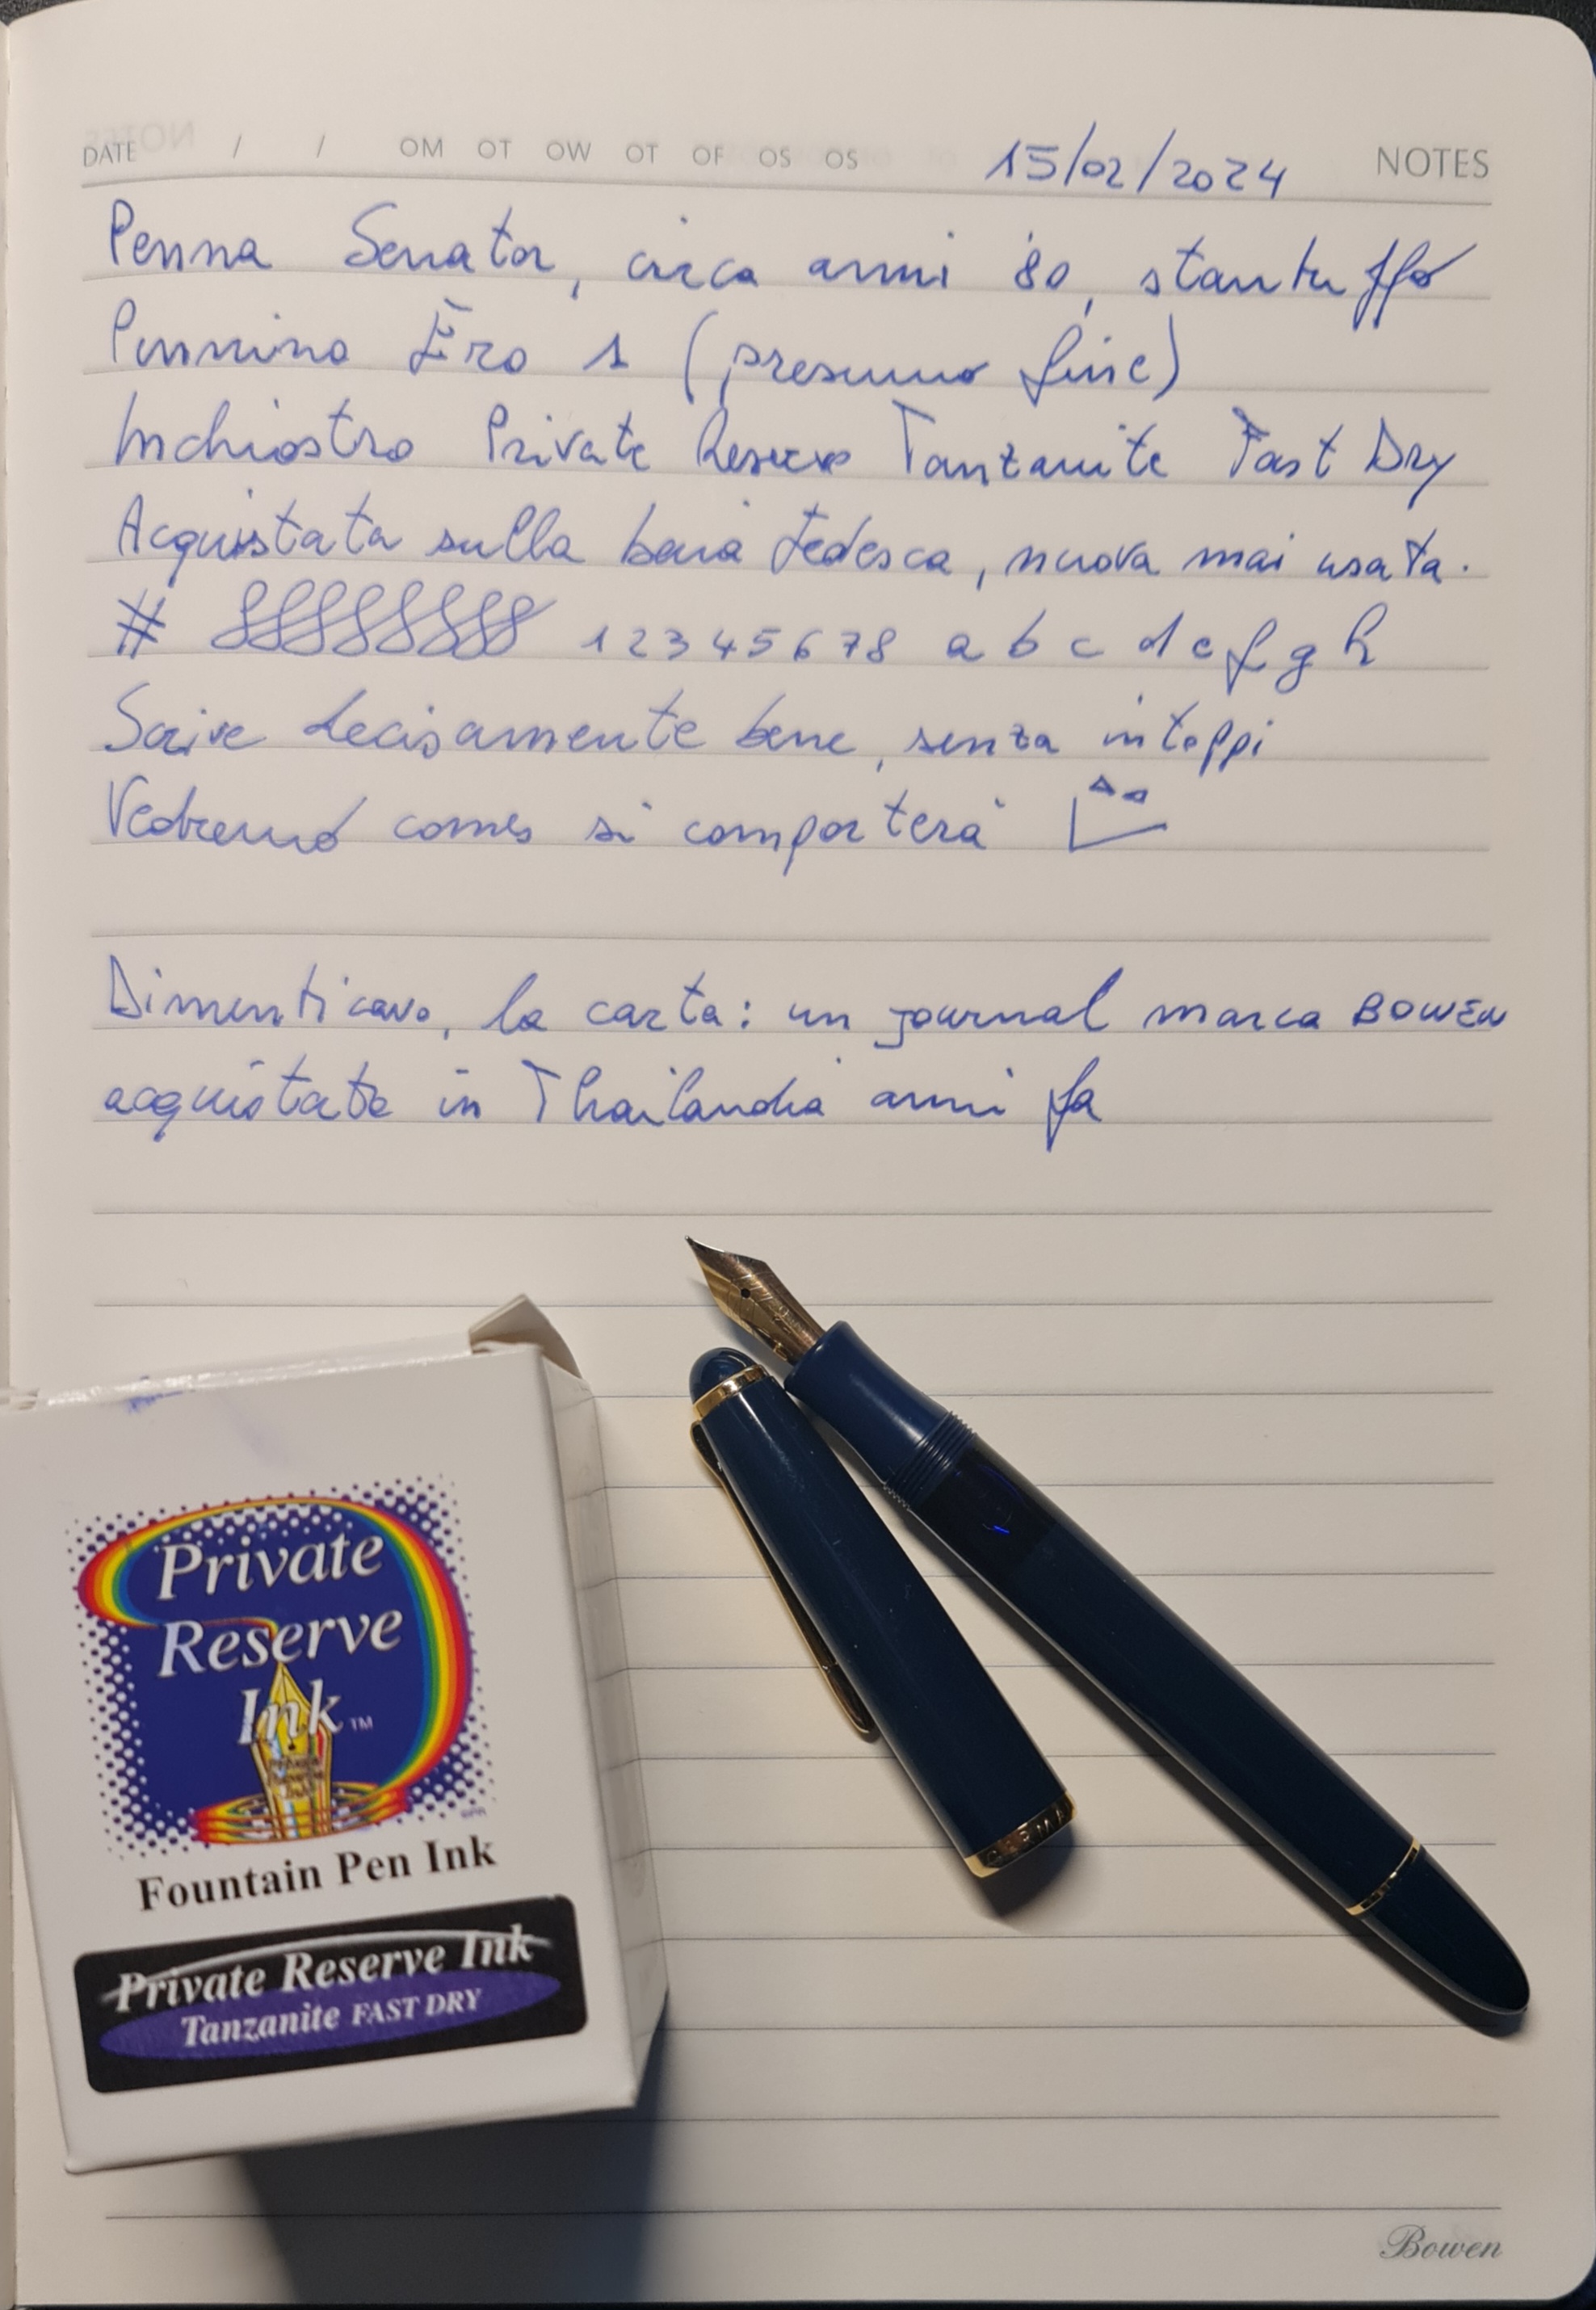 DATE / / OM OT OW OT OF OS OS 15/02/2024 NOTES
Penna Senator, circa anni '80, stantuffo
Pennino Ero 1 (presumo fine)
Inchiostro Private Reserve Tanzanite Fast Dry
Acquistata sulla baia tedesca, nuova mai usata.
# 1 2 3 4 5 6 7 8 a b c d e f g h
Scrive decisamente bene, senza intoppi
Vedremo come si comporterà
Dimenticavo, la carta: un journal marca BOWEN
acquistato in Thailandia anni fa
Private
Reserve
Ink™
Fountain Pen Ink
Private Reserve Ink
Tanzanite FAST DRY
Bowen